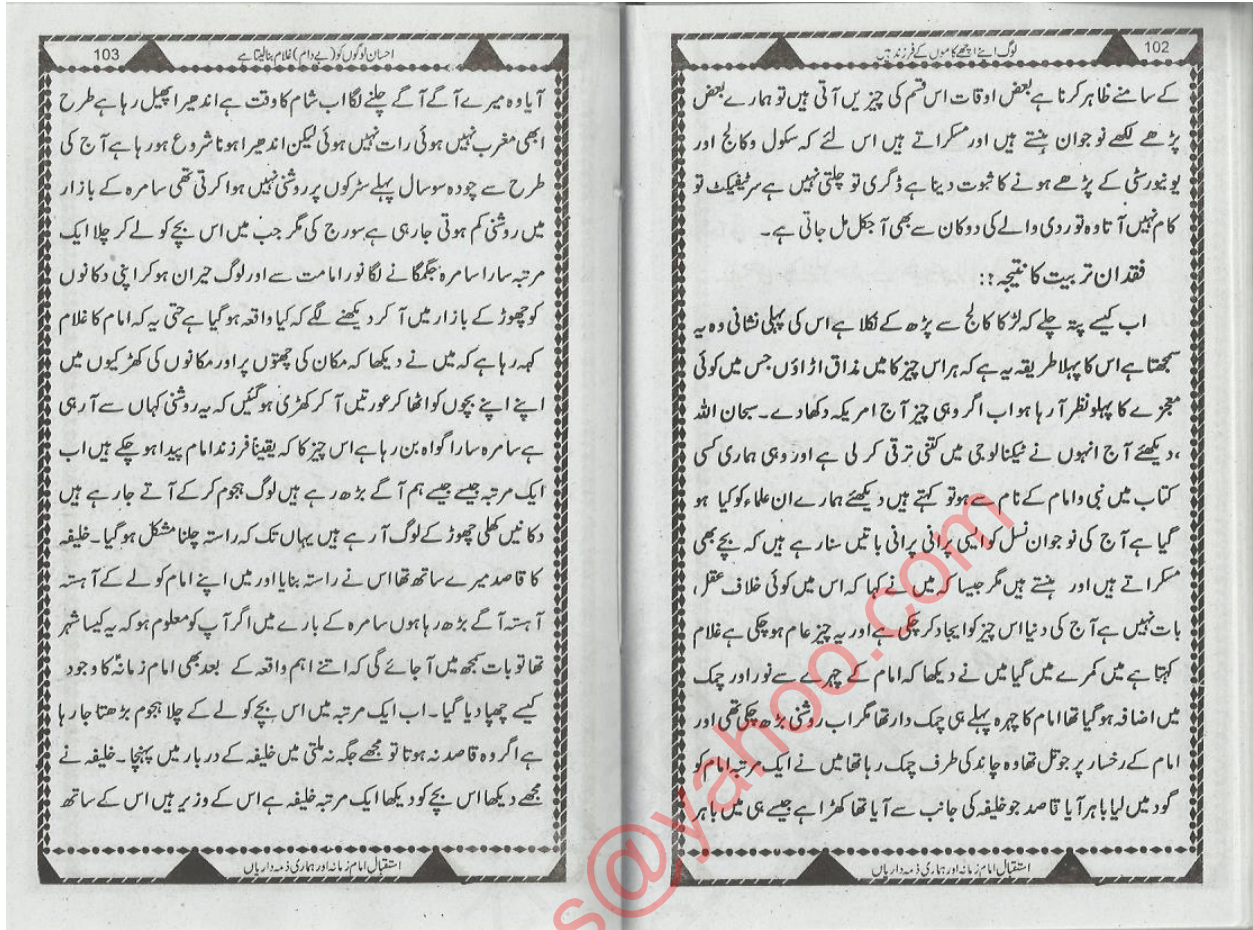 102
لوگ اپنے اچھے کاموں کے فرزند ہیں
کے سامنے ظاہر کرنا ہے بعض اوقات اس قسم کی چیزیں آتی ہیں تو ہمارے بعض
پڑھے لکھے نوجوان ہنستے ہیں اور مسکراتے ہیں اس لئے کہ سکول و کالج اور
یونیورسٹی کے پڑھے ہونے کا ثبوت دینا ہے ڈگری تو چلتی نہیں ہے سرٹیفیکٹ تو
کام نہیں آتا وہ تو ردی والے کی دوکان سے بھی آجکل مل جاتی ہے۔
فقدان تربیت کا نتیجہ ::
اب کیسے پتہ چلے کہ لڑکا کالج سے پڑھ کے نکلا ہے اس کی پہلی نشانی وہ یہ
سمجھتا ہے اس کا پہلا طریقہ یہ ہے کہ ہر اس چیز کا میں مذاق اڑاؤں جس میں کوئی
معجزے کا پہلو نظر آ رہا ہو اب اگر وہی چیز آج امریکہ دکھا دے۔ سبحان اللہ
،دیکھئے آج انہوں نے ٹیکنالوجی میں کتنی ترقی کر لی ہے اور وہی ہماری کسی
کتاب میں نبی و امام کے نام سے ہو تو کہتے ہیں دیکھئے ہمارے ان علماء کو کیا ہو
گیا ہے آج کی نوجوان نسل کو ایسی پرانی پرانی باتیں سنا رہے ہیں کہ بچے بھی
مسکراتے ہیں اور ہنستے ہیں مگر جیسا کہ میں نے کہا کہ اس میں کوئی خلاف عقل،
بات نہیں ہے آج کی دنیا اس چیز کو ایجاد کر چکی ہے اور یہ چیز عام ہو چکی ہے غلام
کہتا ہے میں کمرے میں گیا میں نے دیکھا کہ امام کے چہرے سے نور اور چمک
میں اضافہ ہو گیا تھا امام کا چہرہ پہلے ہی چمک دار تھا مگر اب روشنی بڑھ چکی تھی اور
امام کے رخسار پر جو تل تھا وہ چاند کی طرف چمک رہا تھا میں نے ایک مرتبہ امام کو
گود میں لیا باہر آیا قاصد جو خلیفہ کی جانب سے آیا تھا کھڑا ہے جیسے ہی میں باہر
استقبال امام زمانہ اور ہماری ذمہ داریاں
103
احسان لوگوں کو (بے دام) غلام بنا لیتا ہے
آیا وہ میرے آگے آگے چلنے لگا اب شام کا وقت ہے اندھیرا پھیل رہا ہے طرح
ابھی مغرب نہیں ہوئی رات نہیں ہوئی لیکن اندھیرا ہونا شروع ہو رہا ہے آج کی
طرح سے چودہ سو سال پہلے سڑکوں پر روشنی نہیں ہوا کرتی تھی سامرہ کے بازار
میں روشنی کم ہوتی جا رہی ہے سورج کی مگر جب میں اس بچے کو لے کر چلا ایک
مرتبہ سارا سامرہ جگمگانے لگا نور امامت سے اور لوگ حیران ہو کر اپنی دکانوں
کو چھوڑ کے بازار میں آ کر دیکھنے لگے کہ کیا واقعہ ہو گیا ہے حتی یہ کہ امام کا غلام
کہہ رہا ہے کہ میں نے دیکھا کہ مکان کی چھتوں پر اور مکانوں کی کھڑکیوں میں
اپنے اپنے بچوں کو اٹھا کر عورتیں آ کر کھڑی ہو گئیں کہ یہ روشنی کہاں سے آ رہی
ہے سامرہ سارا گواہ بن رہا ہے اس چیز کا کہ یقیناً فرزند امام پیدا ہو چکے ہیں اب
ایک مرتبہ جیسے جیسے ہم آگے بڑھ رہے ہیں لوگ ہجوم کر کے آتے جا رہے ہیں
دکانیں کھلی چھوڑ کے لوگ آ رہے ہیں یہاں تک کہ راستہ چلنا مشکل ہو گیا۔ خلیفہ
کا قاصد میرے ساتھ تھا اس نے راستہ بنایا اور میں اپنے امام کو لے کے آہستہ
آہستہ آگے بڑھ رہا ہوں سامرہ کے بارے میں اگر آپ کو معلوم ہو کہ یہ کیسا شہر
تھا تو بات سمجھ میں آ جائے گی کہ اتنے اہم واقعہ کے بعد بھی امام زمانہؑ کا وجود
کیسے چھپا دیا گیا۔ اب ایک مرتبہ میں اس بچے کو لے کے چلا ہجوم بڑھتا جا رہا
ہے اگر وہ قاصد نہ ہوتا تو مجھے جگہ نہ ملتی میں خلیفہ کے دربار میں پہنچا۔ خلیفہ نے
مجھے دیکھا اس بچے کو دیکھا ایک مرتبہ خلیفہ ہے اس کے وزیر ہیں اس کے ساتھ
استقبال امام زمانہ اور ہماری ذمہ داریاں
s@yahoo.com